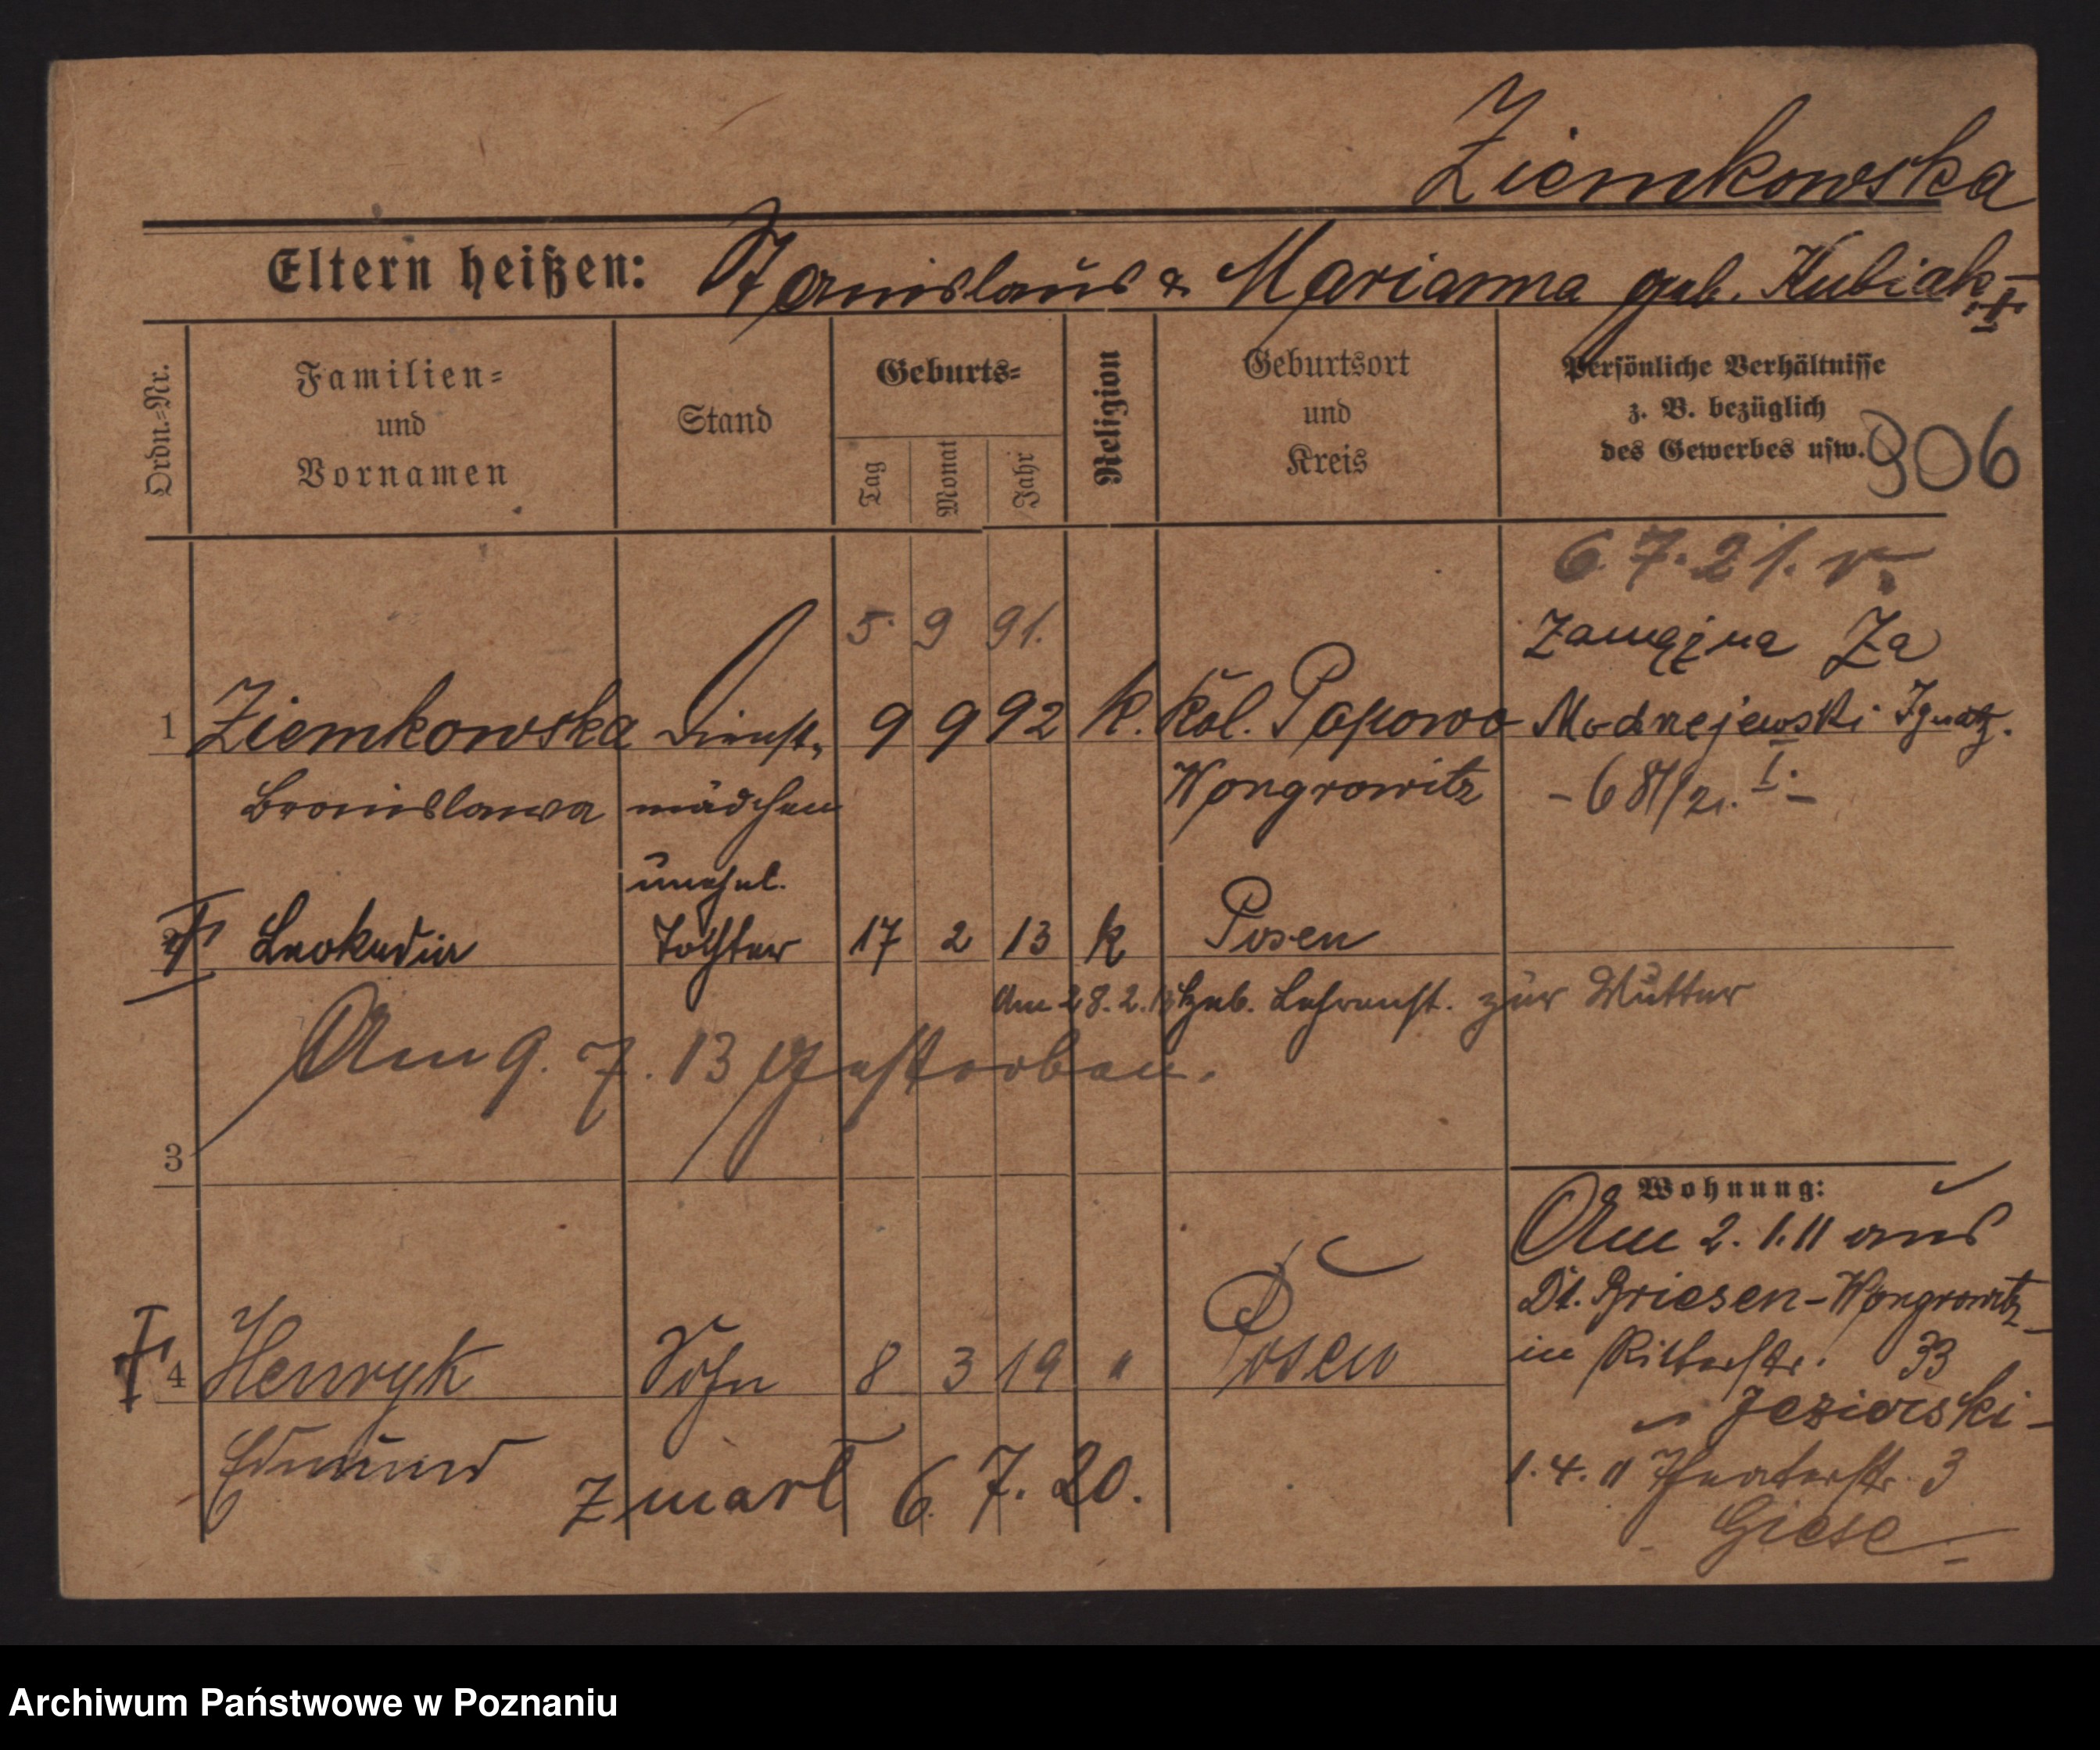 Ziemkowska
Eltern heißen: Stanislaus & Marianna geb. Kubiak
Ordn.-Nr.
Familien-
und
Vornamen
Stand
Geburts-
Tag
Monat
Jahr
Religion
Geburtsort
und
Kreis
Persönliche Verhältnisse
z. B. bezüglich
des Gewerbes usw.
306
6.7.21. v.
5. 9 91.
zamężna za
1 Ziemkowska Dienst- 9 9 92 k. Kol. Popowo Modrzejewski Ignatz.
Bronislawa mädchen Wongrowitz - 68/1/21. I. -
unehel.
2 Leokadia Tochter 17 2 13 k Posen
Am 28.2.13 Hebb. Lehranst. zur Mutter
Am 9. 7. 13 gestorben.
3
Wohnung:
Am 2.1.11 aus
Dt. Briesen-Wongrowitz
in Ritterstr. 33
Jeziorski
4 Henryk Sohn 8 3 19 " Posen
Edmund
zmarł 6. 7. 20.
1.4.11 Theaterstr. 3
Giese